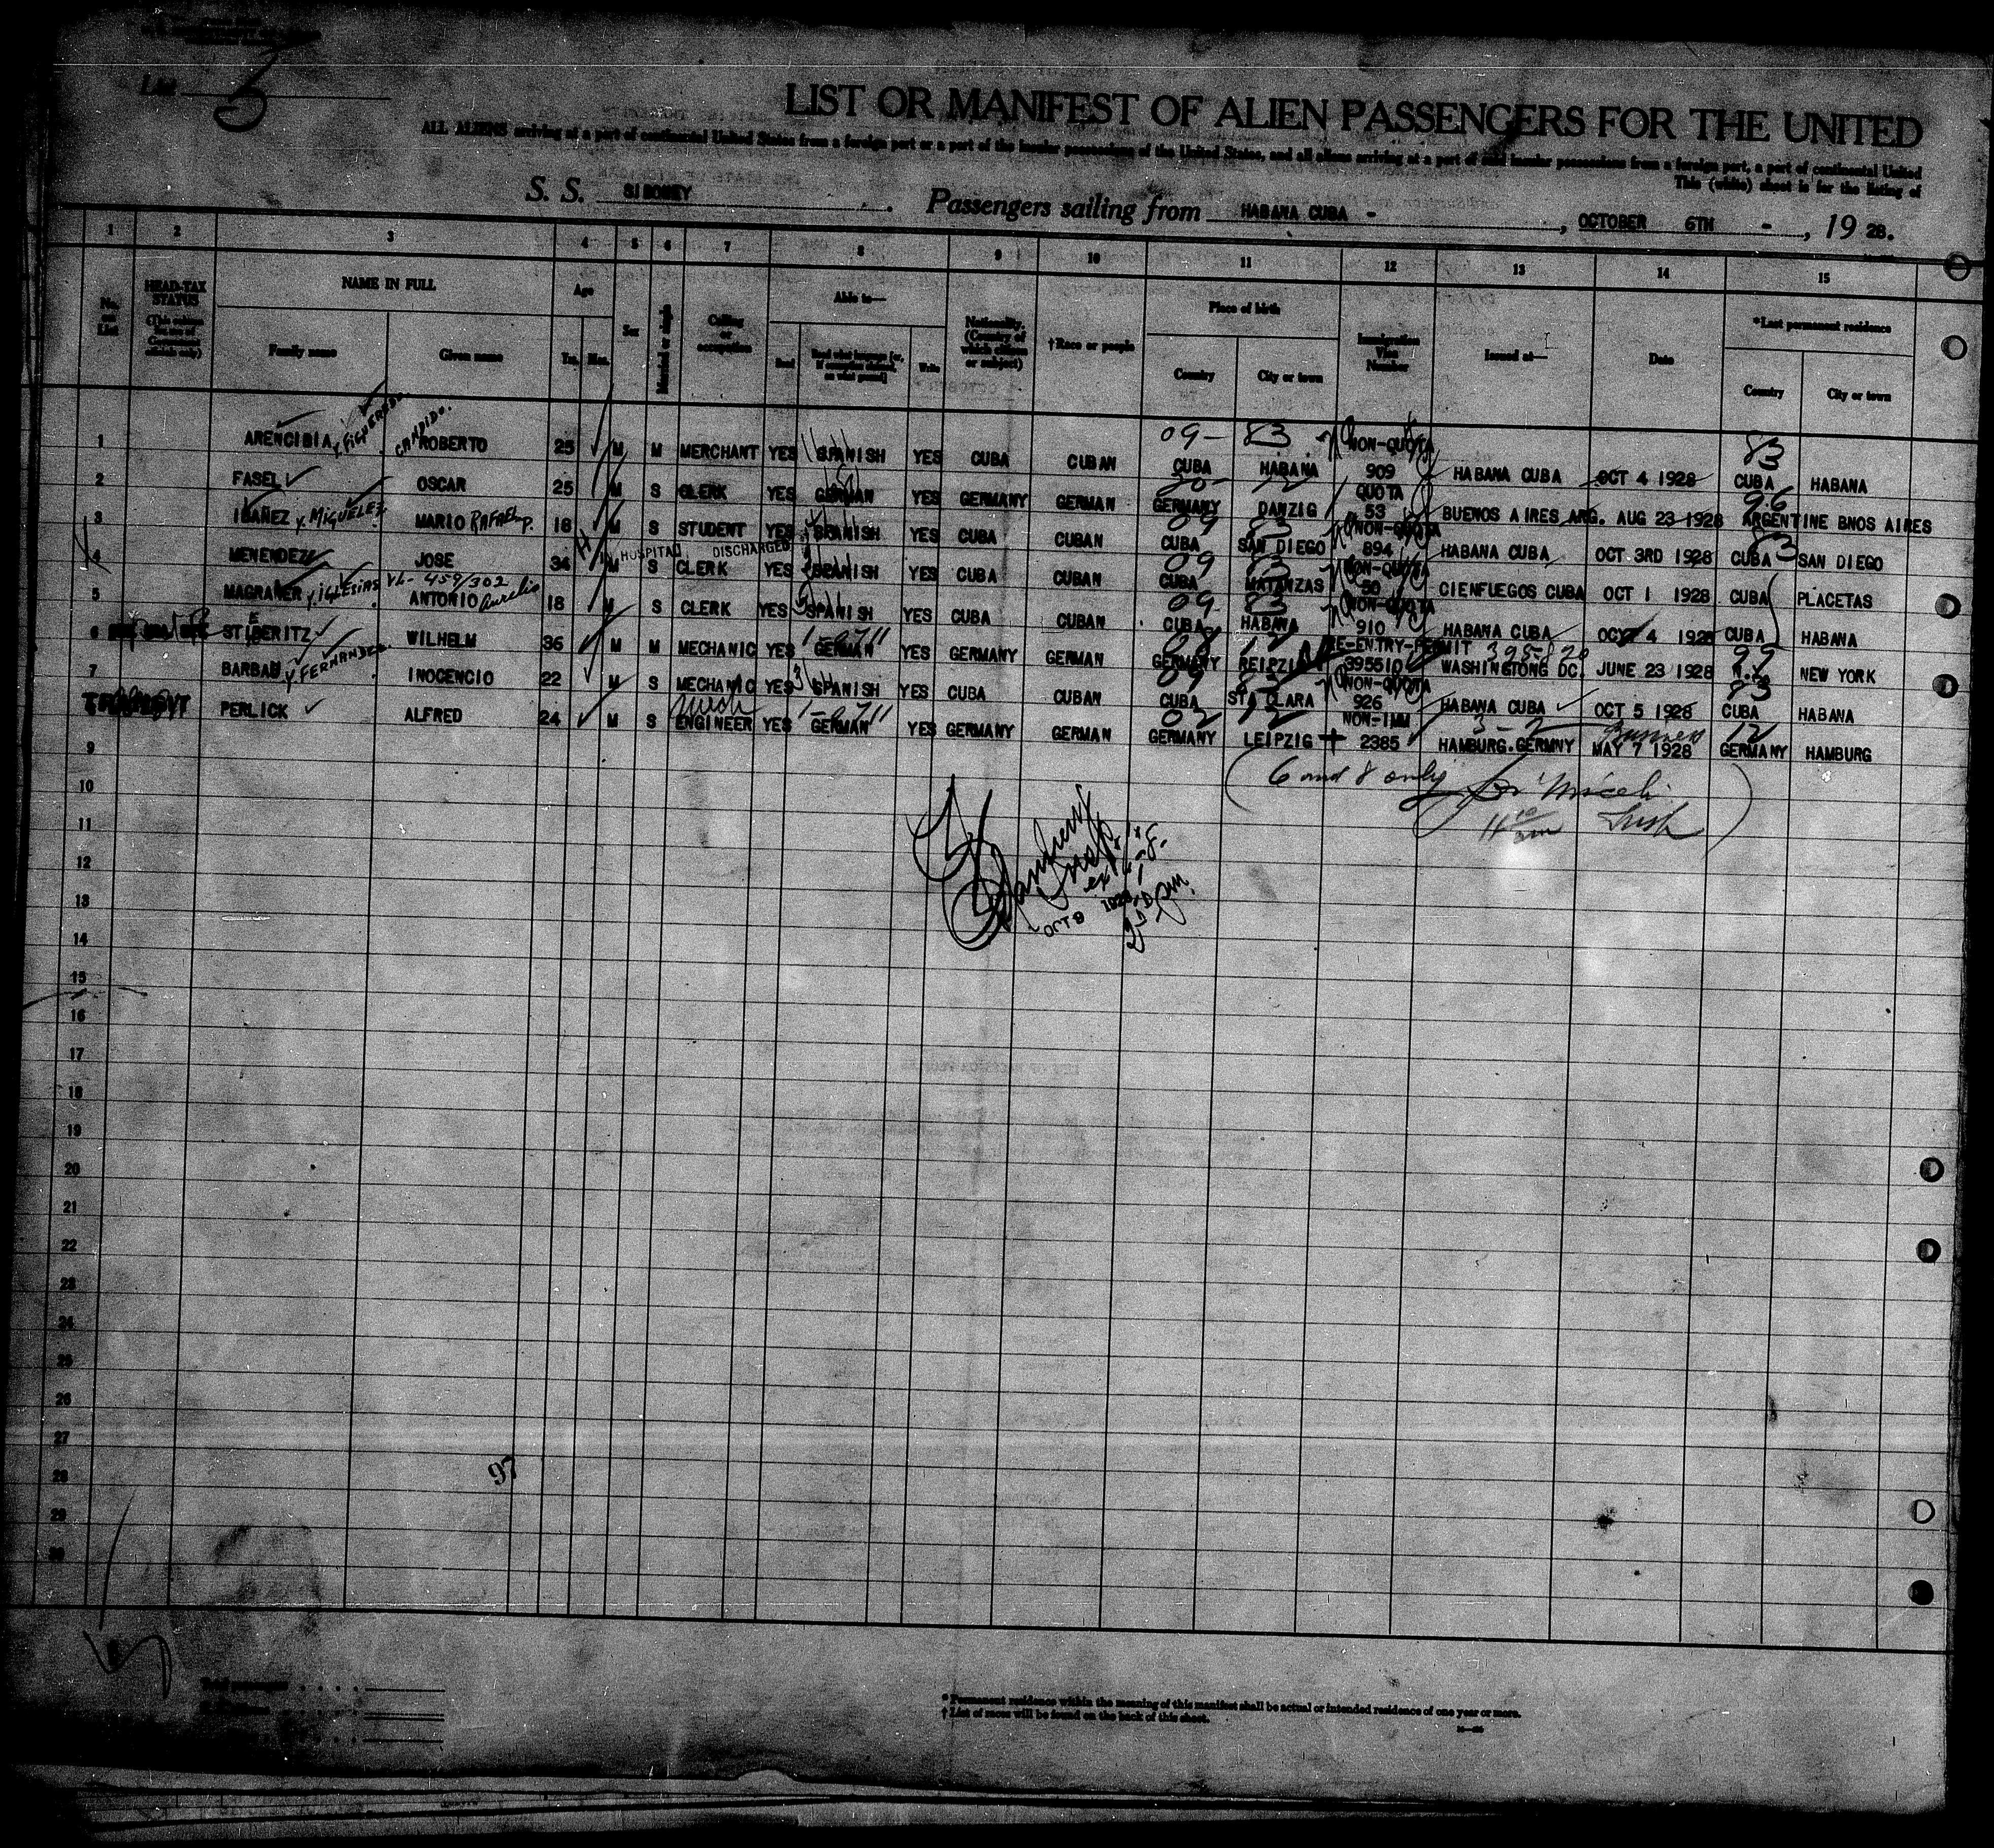 List 3
LIST OR MANIFEST OF ALIEN PASSENGERS FOR THE UNITED
ALL ALIENS arriving at a port of continental United States from a foreign port or a port of the insular possessions of the United States, and all aliens arriving at a port of said insular possessions from a foreign port, a port of continental United
This (white) sheet is for the listing of
S. S. SIBONEY Passengers sailing from HABANA CUBA - , OCTOBER 6TH - , 19 28.
1 2 3 4 5 6 7 8 9 10 11 12 13 14 15
No. on List
HEAD-TAX STATUS (This column for use of Government officials only)
NAME IN FULL
Family name
Given name
Age
Yrs. Mos.
Sex
Married or single
Calling or occupation
Able to—
Read
Read what language [or, if exemption claimed, on what ground]
Write
Nationality. (Country of which citizen or subject)
†Race or people
Place of birth
Country
City or town
Immigration Visa Number
Issued at—
Date
*Last permanent residence
Country
City or town
09- 83 83
1 ARENCIBIA y FIGUEREDO ROBERTO CANDIDO. 25 M M MERCHANT YES SPANISH YES CUBA CUBAN CUBA HABANA NON-QUOTA 909 HABANA CUBA OCT 4 1928 CUBA HABANA
2 FASEL OSCAR 25 M S CLERK YES GERMAN YES GERMANY GERMAN GERMANY DANZIG QUOTA 53 BUENOS AIRES ARG. AUG 23 1928 96 ARGENTINE BNOS AIRES
3 IBAÑEZ y MIGUELEZ MARIO RAFAEL P. 18 M S STUDENT YES SPANISH YES CUBA CUBAN 09 83 CUBA SAN DIEGO NON-QUOTA 894 HABANA CUBA OCT 3RD 1928 CUBA 83 SAN DIEGO
IN HOSPITAL DISCHARGED
4 MENENDEZ JOSE 34 M S CLERK YES SPANISH YES CUBA CUBAN 09 83 CUBA MATANZAS NON-QUOTA 50 CIENFUEGOS CUBA OCT 1 1928 CUBA PLACETAS
VL- 459/302
5 MAGRANER y IGLESIAS ANTONIO Aurelio 18 M S CLERK YES SPANISH YES CUBA CUBAN 09 83 CUBA HABANA NON-QUOTA 910 HABANA CUBA OCT 4 1928 CUBA HABANA
6 STIBERITZ E WILHELM 36 M M MECHANIC YES GERMAN YES GERMANY GERMAN GERMANY REIPZIG RE-ENTRY-PERMIT 395510 WASHINGTONG DC. JUNE 23 1928 99 N.Y. NEW YORK
7 BARBAN y FERNANDEZ. INOCENCIO 22 M S MECHANIC YES SPANISH YES CUBA CUBAN 09 83 CUBA STA CLARA NON-QUOTA 926 HABANA CUBA OCT 5 1928 83 CUBA HABANA
8 PERLICK ALFRED 24 M S Mech ENGINEER YES GERMAN YES GERMANY GERMAN 02 12 GERMANY LEIPZIG NON-IMM 2385 3-2 HAMBURG.GERMNY MAY 7 1928 12 GERMANY HAMBURG
9
10 (6 and 8 only
11
12
13 OCT 8 1928
14
15
16
17
18
19
20
21
22
23
24
25
26
27
28 97
29
30
* Permanent residence within the meaning of this manifest shall be actual or intended residence of one year or more.
† List of races will be found on the back of this sheet.